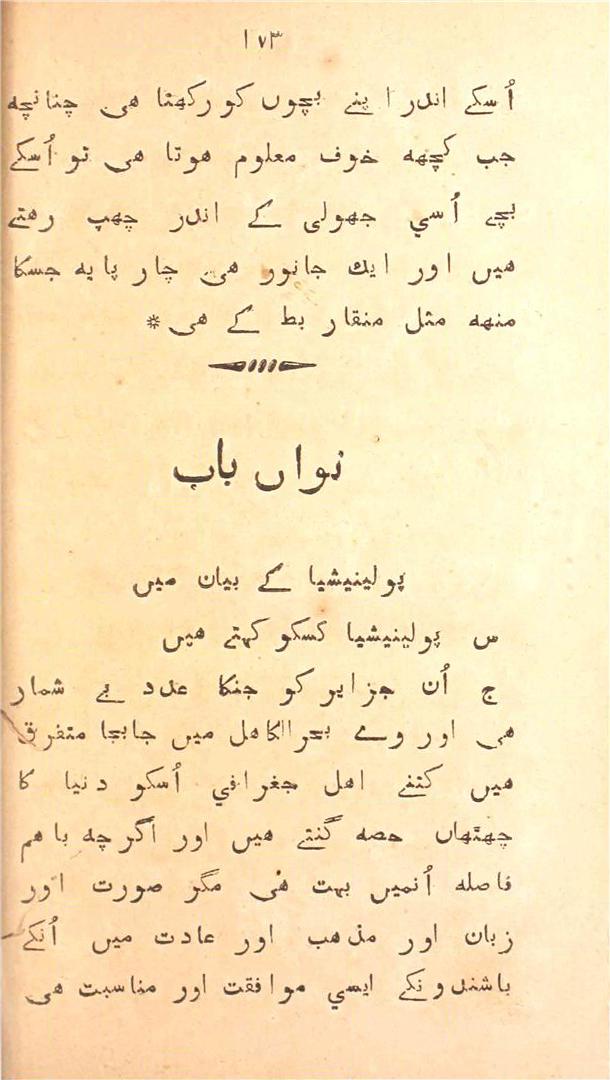 ۱۷۳
اُسکے اندر اپنے بچوں کو رکھتا هی چنانچه
جب کچھه خوف معلوم هوتا هی تو اُسکے
بچے اُسي جھولی کے اندر چھپ رهتے
هیں اور ایك جانور هی چار پایه جسکا
منهه مثل منقار بط کے هی *
نواں باب
پولینیشیا کے بیان میں
س پولینیشیا کسکو کہتے هیں
ج اُن جزایر کو جنکا عدد بے شمار
هی اور وے بحرالکاهل میں جابجا متفرق
هیں کتنے اهل جغرافي اُسکو دنیا کا
چھتھاں حصه گنتے هیں اور اگرچه باهم
فاصله اُنمیں بہت هی مگر صورت اور
زبان اور مذهب اور عادت میں اُنکے
باشندونکے ایسي موافقت اور مناسبت هی